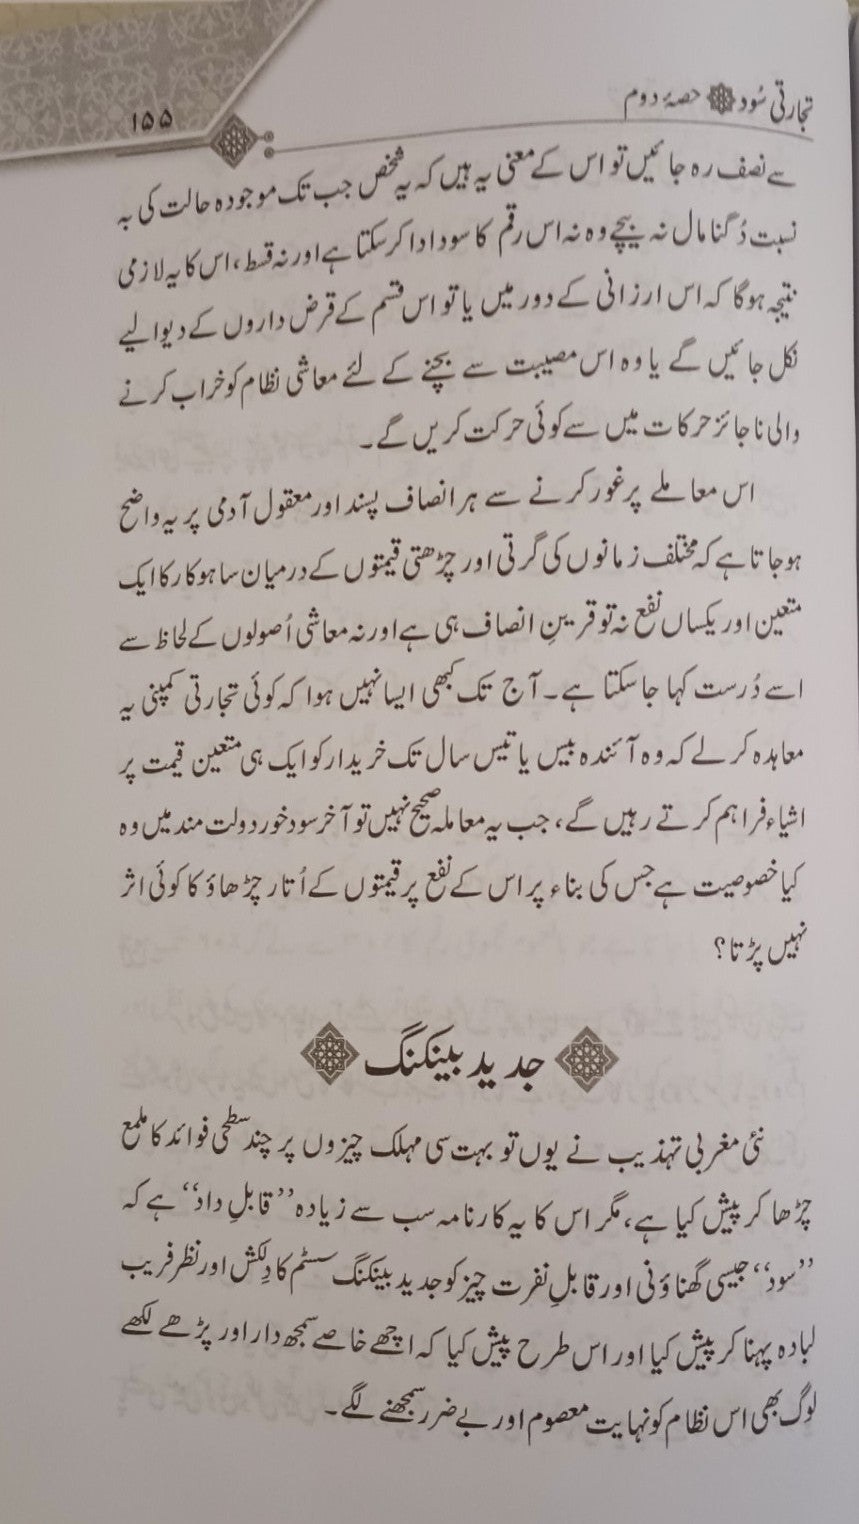 تجارتی سُود حصۂ دوم
۱۵۵
سے نصف رہ جائیں تو اس کے معنی یہ ہیں کہ یہ شخص جب تک موجودہ حالت کی بہ
نسبت دُگنا مال نہ بیچے وہ نہ اس رقم کا سود ادا کرسکتا ہے اور نہ قسط، اس کا یہ لازمی
نتیجہ ہوگا کہ اس ارزانی کے دور میں یا تو اس قسم کے قرض داروں کے دیوالیے
نکل جائیں گے یا وہ اس مصیبت سے بچنے کے لئے معاشی نظام کو خراب کرنے
والی ناجائز حرکات میں سے کوئی حرکت کریں گے۔
اس معاملے پر غور کرنے سے ہر انصاف پسند اور معقول آدمی پر یہ واضح
ہوجاتا ہے کہ مختلف زمانوں کی گرتی اور چڑھتی قیمتوں کے درمیان ساہوکار کا ایک
متعین اور یکساں نفع نہ تو قرینِ انصاف ہی ہے اور نہ معاشی اُصولوں کے لحاظ سے
اسے دُرست کہا جاسکتا ہے۔ آج تک کبھی ایسا نہیں ہوا کہ کوئی تجارتی کمپنی یہ
معاہدہ کرلے کہ وہ آئندہ بیس یا تیس سال تک خریدار کو ایک ہی متعین قیمت پر
اشیاء فراہم کرتے رہیں گے، جب یہ معاملہ صحیح نہیں تو آخر سود خور دولت مند میں وہ
کیا خصوصیت ہے جس کی بناء پر اس کے نفع پر قیمتوں کے اُتار چڑھاؤ کا کوئی اثر
نہیں پڑتا؟
جدید بینکنگ
نئی مغربی تہذیب نے یوں تو بہت سی مہلک چیزوں پر چند سطحی فوائد کا ملمع
چڑھا کر پیش کیا ہے، مگر اس کا یہ کارنامہ سب سے زیادہ ’’قابلِ داد‘‘ ہے کہ
’’سود‘‘ جیسی گھناؤنی اور قابلِ نفرت چیز کو جدید بینکنگ سسٹم کا دِلکش اور نظر فریب
لبادہ پہنا کر پیش کیا اور اس طرح پیش کیا کہ اچھے خاصے سمجھ دار اور پڑھے لکھے
لوگ بھی اس نظام کو نہایت معصوم اور بے ضرر سمجھنے لگے۔